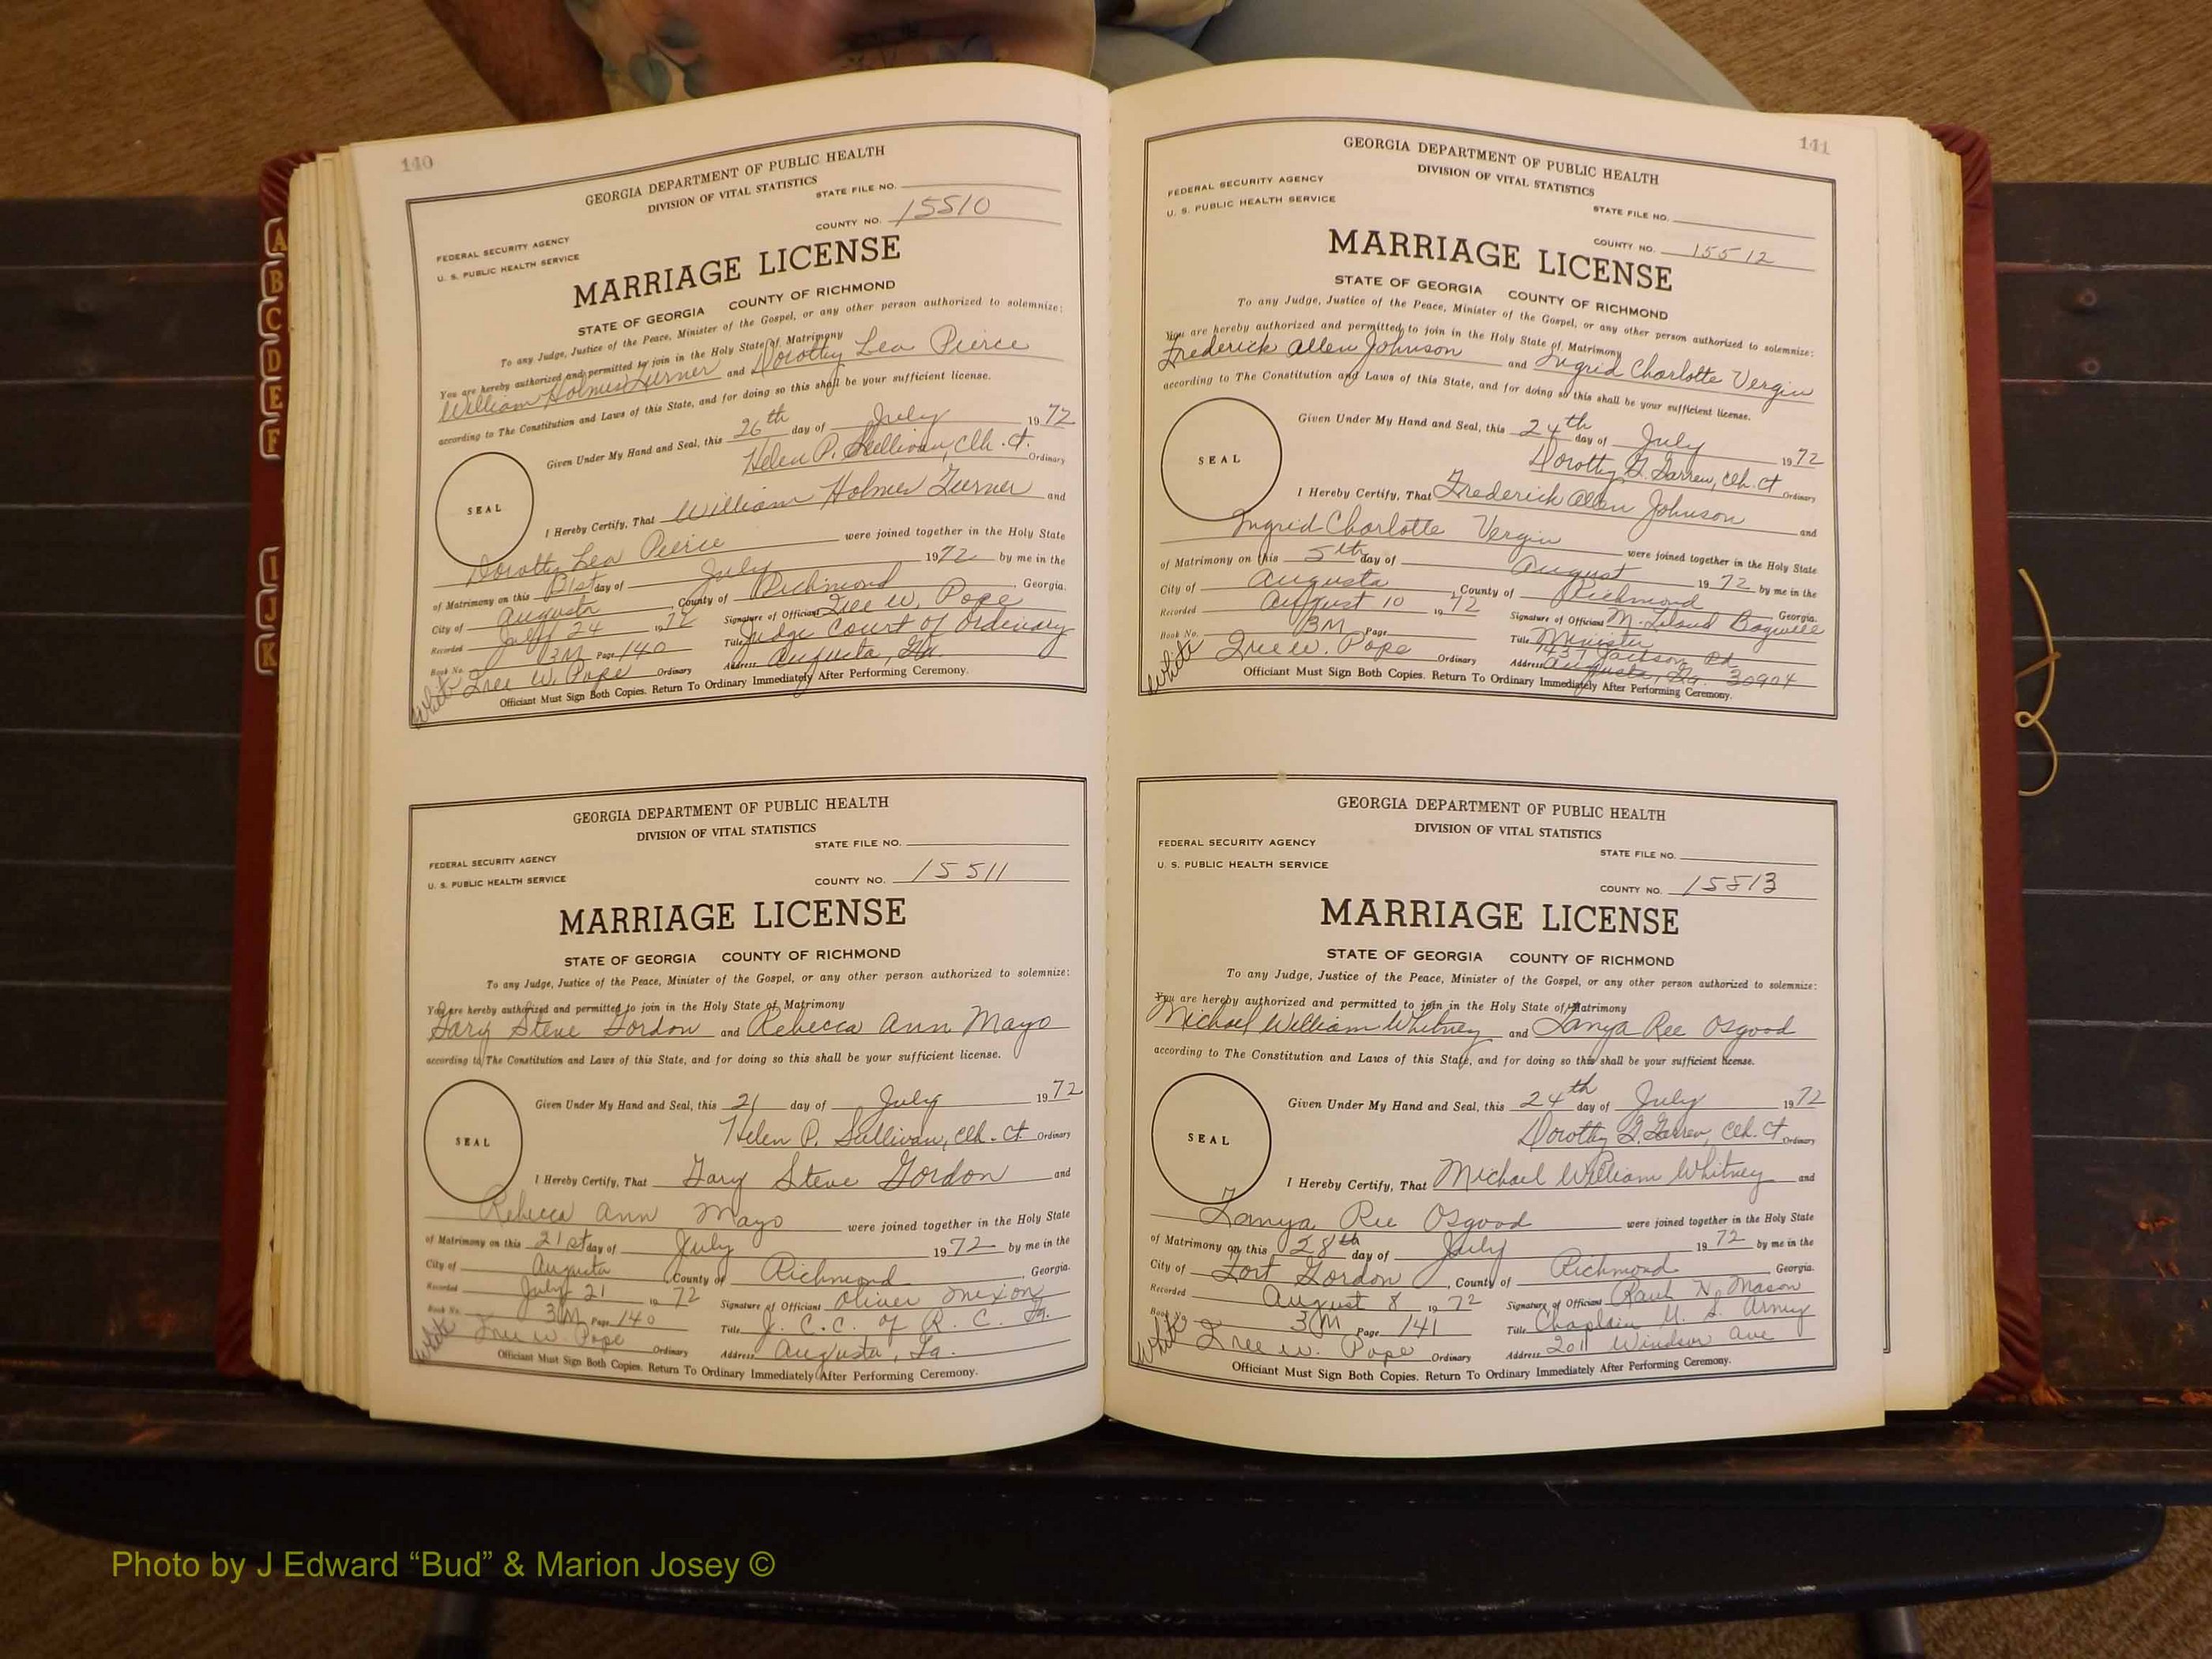 140
GEORGIA DEPARTMENT OF PUBLIC HEALTH
DIVISION OF VITAL STATISTICS
STATE FILE NO.
FEDERAL SECURITY AGENCY
U. S. PUBLIC HEALTH SERVICE
COUNTY NO. 15510
MARRIAGE LICENSE
STATE OF GEORGIA COUNTY OF RICHMOND
To any Judge, Justice of the Peace, Minister of the Gospel, or any other person authorized to solemnize:
You are hereby authorized and permitted to join in the Holy State of Matrimony
William Holmes Turner and Dorothy Lea Pierce
according to The Constitution and Laws of this State, and for doing so this shall be your sufficient license.
Given Under My Hand and Seal, this 26th day of July 1972
Helen P. Sullivan, Clk. Ct. Ordinary
SEAL
I Hereby Certify, That William Holmes Turner and
Dorothy Lea Peirce were joined together in the Holy State
of Matrimony on this day of July 1972 by me in the
City of Augusta, County of Richmond, Georgia.
Recorded July 24 1972 Signature of Officiant W. Pope
Book No. 3M Page 140 Title Judge Court of Ordinary
W. Pope Ordinary Address Augusta, Ga.
White
Officiant Must Sign Both Copies. Return To Ordinary Immediately After Performing Ceremony.
GEORGIA DEPARTMENT OF PUBLIC HEALTH
DIVISION OF VITAL STATISTICS
STATE FILE NO.
FEDERAL SECURITY AGENCY
U. S. PUBLIC HEALTH SERVICE
COUNTY NO. 15511
MARRIAGE LICENSE
STATE OF GEORGIA COUNTY OF RICHMOND
To any Judge, Justice of the Peace, Minister of the Gospel, or any other person authorized to solemnize:
You are hereby authorized and permitted to join in the Holy State of Matrimony
Gary Steve Gordon and Rebecca Ann Mayo
according to The Constitution and Laws of this State, and for doing so this shall be your sufficient license.
Given Under My Hand and Seal, this 21 day of July 1972
Helen P. Sullivan, Clk. Ct. Ordinary
SEAL
I Hereby Certify, That Gary Steve Gordon and
Rebecca Ann Mayo were joined together in the Holy State
of Matrimony on this 21st day of July 1972 by me in the
City of Augusta County of Richmond, Georgia.
Recorded July 21 1972 Signature of Officiant Oliver Mixon
Book No. 3M Page 140 Title J. C. C. of R. C. Ga.
W. Pope Ordinary Address Augusta, Ga.
White
Officiant Must Sign Both Copies. Return To Ordinary Immediately After Performing Ceremony.
141
GEORGIA DEPARTMENT OF PUBLIC HEALTH
DIVISION OF VITAL STATISTICS
FEDERAL SECURITY AGENCY
U. S. PUBLIC HEALTH SERVICE
STATE FILE NO.
COUNTY NO. 15512
MARRIAGE LICENSE
STATE OF GEORGIA COUNTY OF RICHMOND
To any Judge, Justice of the Peace, Minister of the Gospel, or any other person authorized to solemnize:
You are hereby authorized and permitted to join in the Holy State of Matrimony
Frederick Allen Johnson and Ingrid Charlotte Vergin
according to The Constitution and Laws of this State, and for doing so this shall be your sufficient license.
Given Under My Hand and Seal, this 24th day of July 1972
Dorothy G. Clk. Ct. Ordinary
SEAL
I Hereby Certify, That Frederick Allen Johnson and
Ingrid Charlotte Vergin were joined together in the Holy State
of Matrimony on this 5th day of August 1972 by me in the
City of Augusta, County of Richmond Georgia.
Recorded August 10 1972 Signature of Officiant M. Leland Bagwell
Book No. 3M Page Title Minister
W. Pope Ordinary Address Jackson Rd
Augusta, Ga. 30904
White
Officiant Must Sign Both Copies. Return To Ordinary Immediately After Performing Ceremony.
GEORGIA DEPARTMENT OF PUBLIC HEALTH
DIVISION OF VITAL STATISTICS
FEDERAL SECURITY AGENCY
STATE FILE NO.
U. S. PUBLIC HEALTH SERVICE
COUNTY NO. 15513
MARRIAGE LICENSE
STATE OF GEORGIA COUNTY OF RICHMOND
To any Judge, Justice of the Peace, Minister of the Gospel, or any other person authorized to solemnize:
You are hereby authorized and permitted to join in the Holy State of Matrimony
Michael William Whitney and Tanya Ree Osgood
according to The Constitution and Laws of this State, and for doing so this shall be your sufficient license.
Given Under My Hand and Seal, this 24th day of July 1972
Dorothy G. Clk. Ct. Ordinary
SEAL
I Hereby Certify, That Michael William Whitney and
Tanya Ree Osgood were joined together in the Holy State
of Matrimony on this 28th day of July 1972 by me in the
City of Fort Gordon, County of Richmond Georgia.
Recorded August 8 1972 Signature of Officiant N. Mason
Book No. 3M Page 141 Title Chaplain U. S. Army
W. Pope Ordinary Address 2011 Windsor Ave
White
Officiant Must Sign Both Copies. Return To Ordinary Immediately After Performing Ceremony.
A
B
C
D
E
F
I
J
K
Photo by J Edward “Bud” & Marion Josey ©